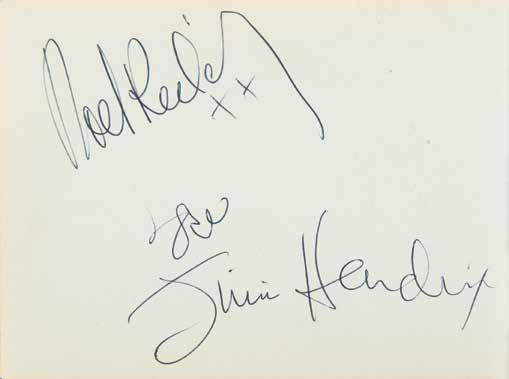 Noel Redding
xx
Jimi Hendrix